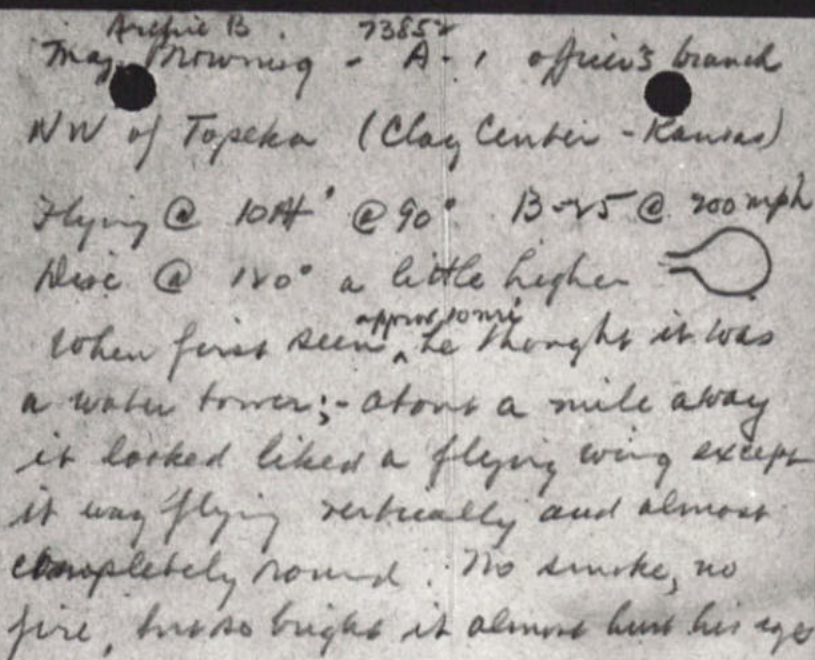 Archie B. 73852
Maj. Browning - A-1 officer's branch
NW of Topeka (Clay Center - Kansas)
Flying @ 10M' @ 90° B-25 @ 200 mph
Disc @ 120° a little higher
approx 10 mi
When first seen ^ he thought it was
a water tower; - about a mile away
it looked liked a flying wing except
it way flying vertically and almost
completely round. No smoke, no
fire, but so bright it almost hurt his eyes